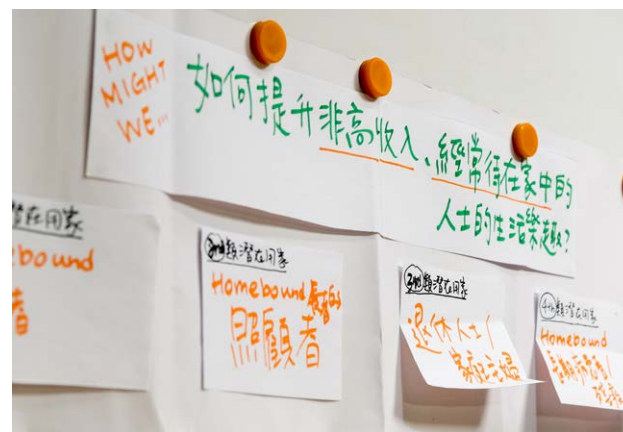 HOW
MIGHT
WE...
如何提升非高收入、經常待在家中的
人士的生活樂趣?
潛在用家
bound
者
2nd類潛在用家
Homebound 長者的
照顧者
3rd類潛在用家
退休人士/
家庭主婦
4th類潛在用家
Homebound
長期病患者/